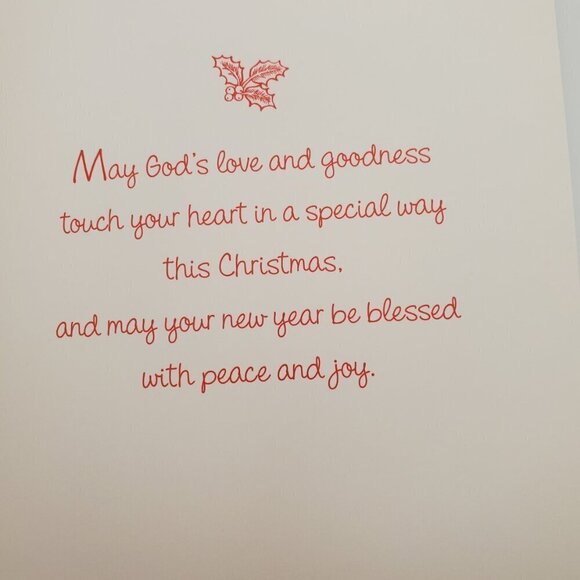 May God's love and goodness
touch your heart in a special way
this Christmas,
and may your new year be blessed
with peace and joy.